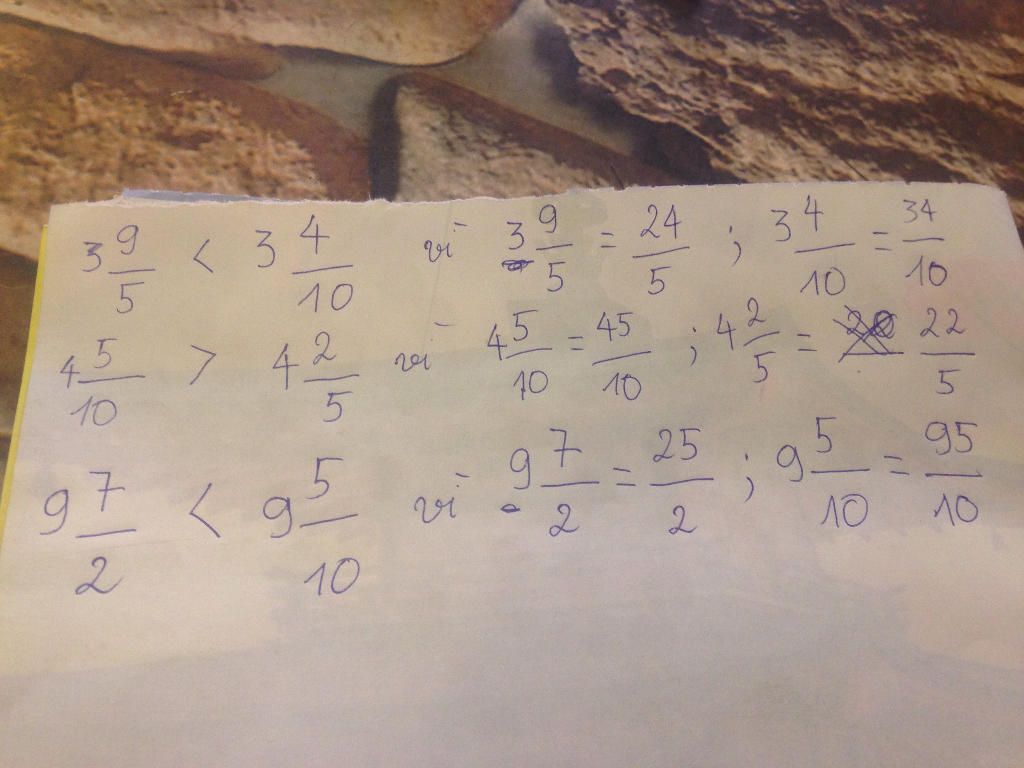 3 9/5 < 3 4/10 vì 3 9/5 = 24/5 ; 3 4/10 = 34/10
4 5/10 > 4 2/5 vì 4 5/10 = 45/10 ; 4 2/5 = 22/5
9 7/2 < 9 5/10 vì 9 7/2 = 25/2 ; 9 5/10 = 95/10